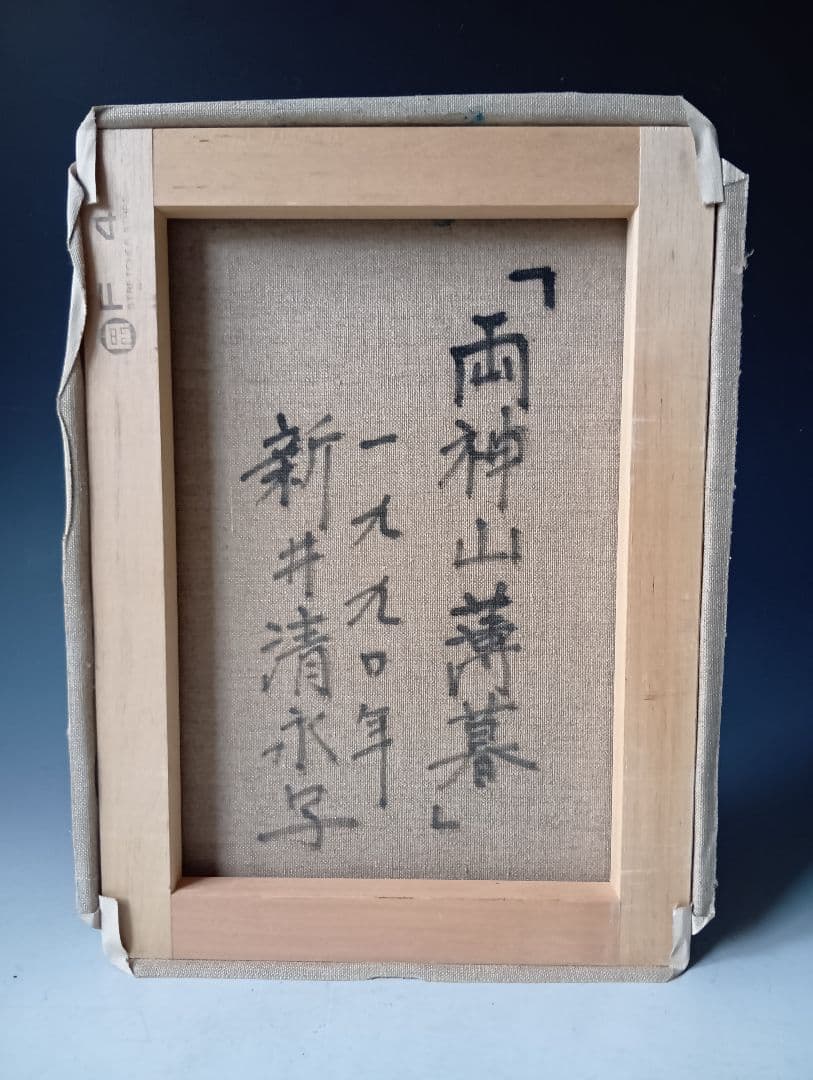 「両神山薄暮」
一九九〇年
新井清永写
F 4